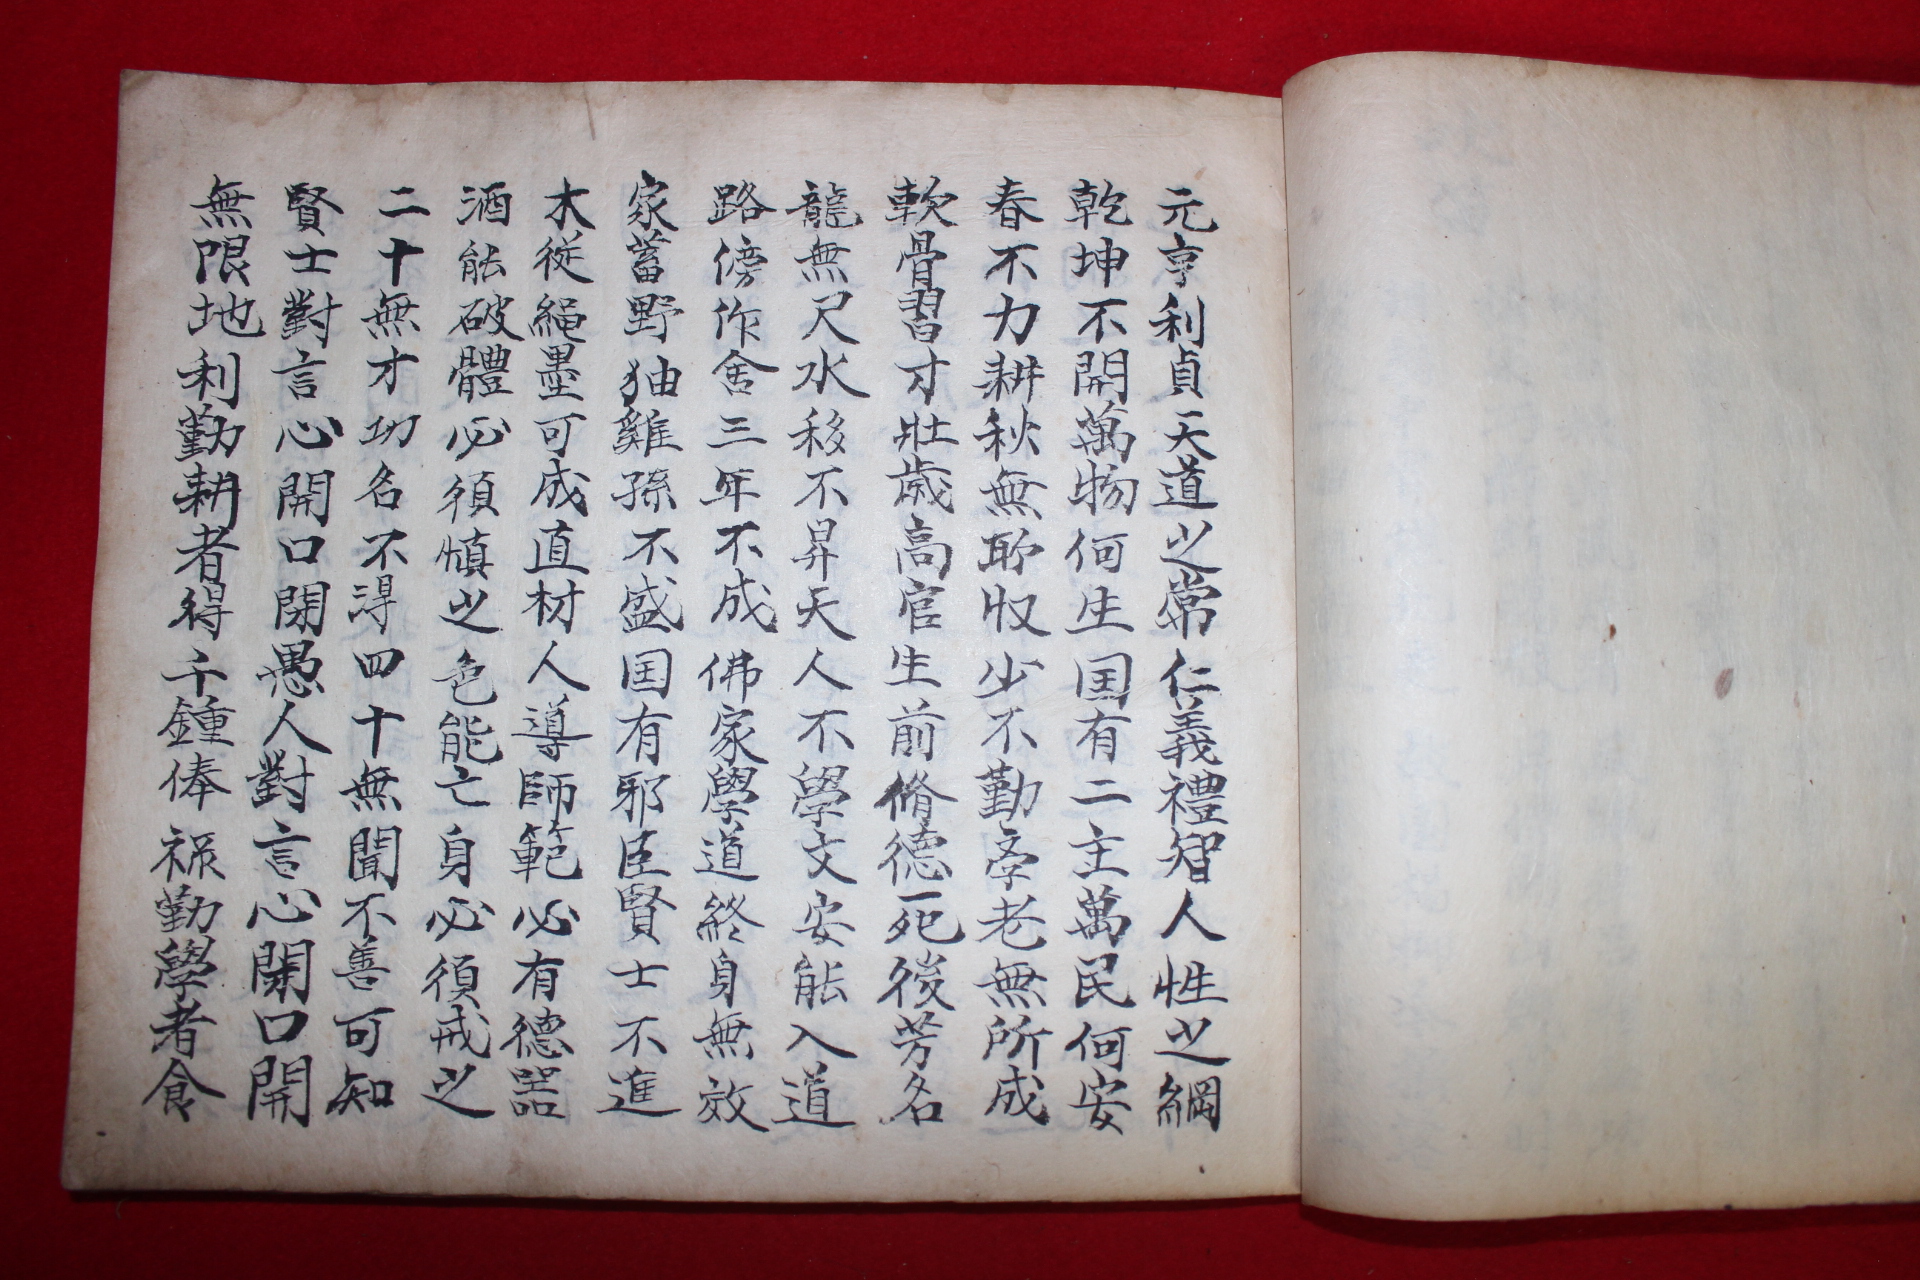 元亨利貞天道之常仁義禮智人性之綱
乾坤不開萬物何生国有二主萬民何安
春不力耕秋無所収少不勤斈老無所成
軟骨習才壯歲高官生前脩德死後芳名
龍無尺水移不昇天人不學文安能入道
路傍作舍三年不成佛家學道終身無效
家蓄野狪雞孫不盛国有邪臣賢士不進
木從繩墨可成直材人導師範必有德器
酒能破體必須慎之色能亡身必須戒之
二十無才功名不淂四十無聞不善可知
賢士對言心開口閉愚人對言心閉口開
無限地利勤耕者得千鍾俸祿勤學者食